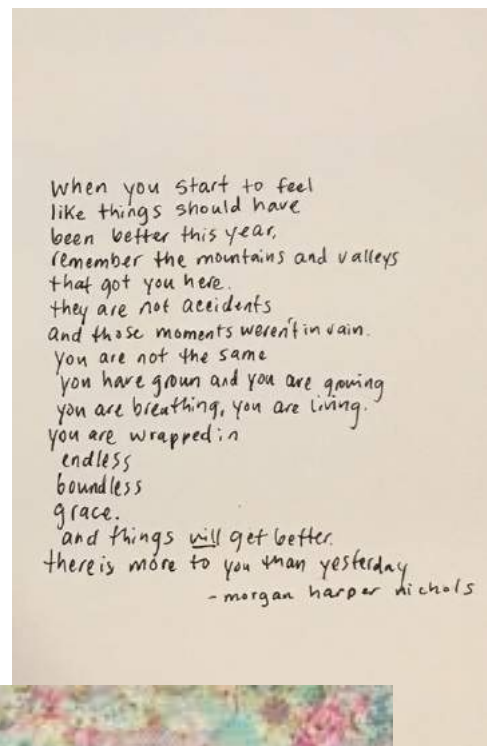 When you start to feel
like things should have
been better this year,
remember the mountains and valleys
that got you here.
they are not accidents
and those moments weren't in vain.
you are not the same
you have grown and you are growing
you are breathing, you are living.
you are wrapped in
endless
boundless
grace.
and things will get better.
there is more to you than yesterday
- morgan harper nichols